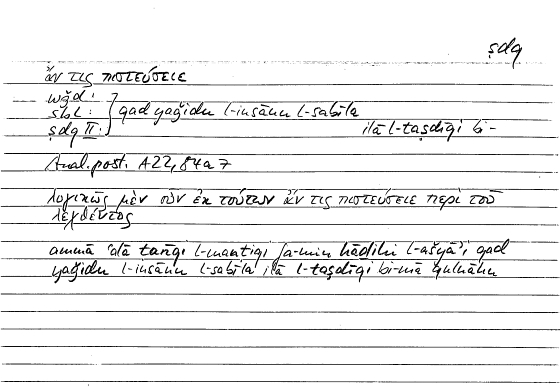 ṣdq
ἄν τις πιστεύσειε
wǧd:
sbl: } qad yaǧidu l-insānu l-sabīla
ṣdq II: ilā l-taṣdīqi bi-
Anal. post. A22, 84a7
λογικῶς μὲν οὖν ἐκ τούτων ἄν τις πιστεύσειε περὶ τοῦ
λεχθέντος
ammā ʿalā ṭarīqi l-manṭiqi fa-min hāḏihi l-ašyāʾi qad
yaǧidu l-insānu l-sabīla ilā l-taṣdīqi bi-mā qulnāhu